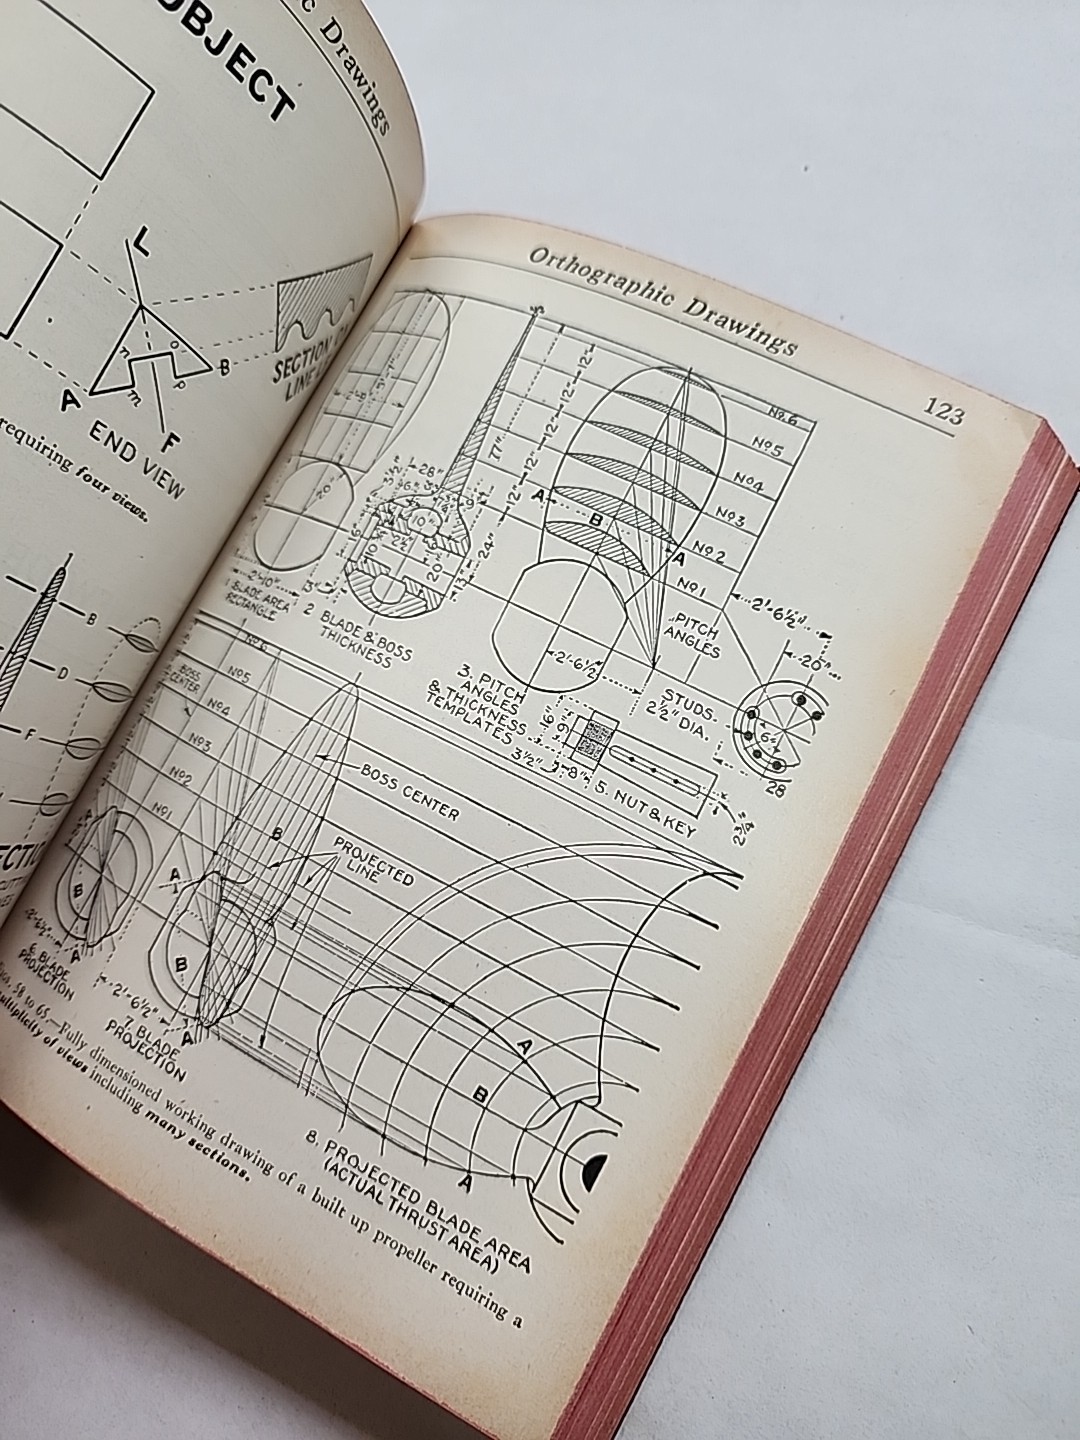 c Drawings
OBJECT
L
n
o
B
A
m
p
F
SECTION
LINE
END VIEW
requiring four views.
B
D
F
Orthographic Drawings
123
77"
12"
12"
12"
12"
12"
Nº.6
Nº5
Nº4
Nº3
Nº2
Nº1
A
B
A
28"
10"
24"
13"
20"
2'-10"
1 BLADE AREA
RECTANGLE
3"
2 BLADE & BOSS
THICKNESS
2'-6½"
3. PITCH
ANGLES
& THICKNESS
TEMPLATES
PITCH
ANGLES
2'-6½"
20"
STUDS.
2½" DIA.
6½
28
16"
9"
3½"
8"
5. NUT & KEY
2¾
Nº6
Nº5
Nº4
Nº3
Nº2
Nº1
BOSS
CENTER
BOSS CENTER
PROJECTED
LINE
A
B
A
2'-6½"
6 BLADE
PROJECTION
A
B
B
A
2'-6½"
7. BLADE
PROJECTION
A
B
A
8. PROJECTED BLADE AREA
(ACTUAL THRUST AREA)
58 to 65.—Fully dimensioned working drawing of a built up propeller requiring a
multiplicity of views including many sections.